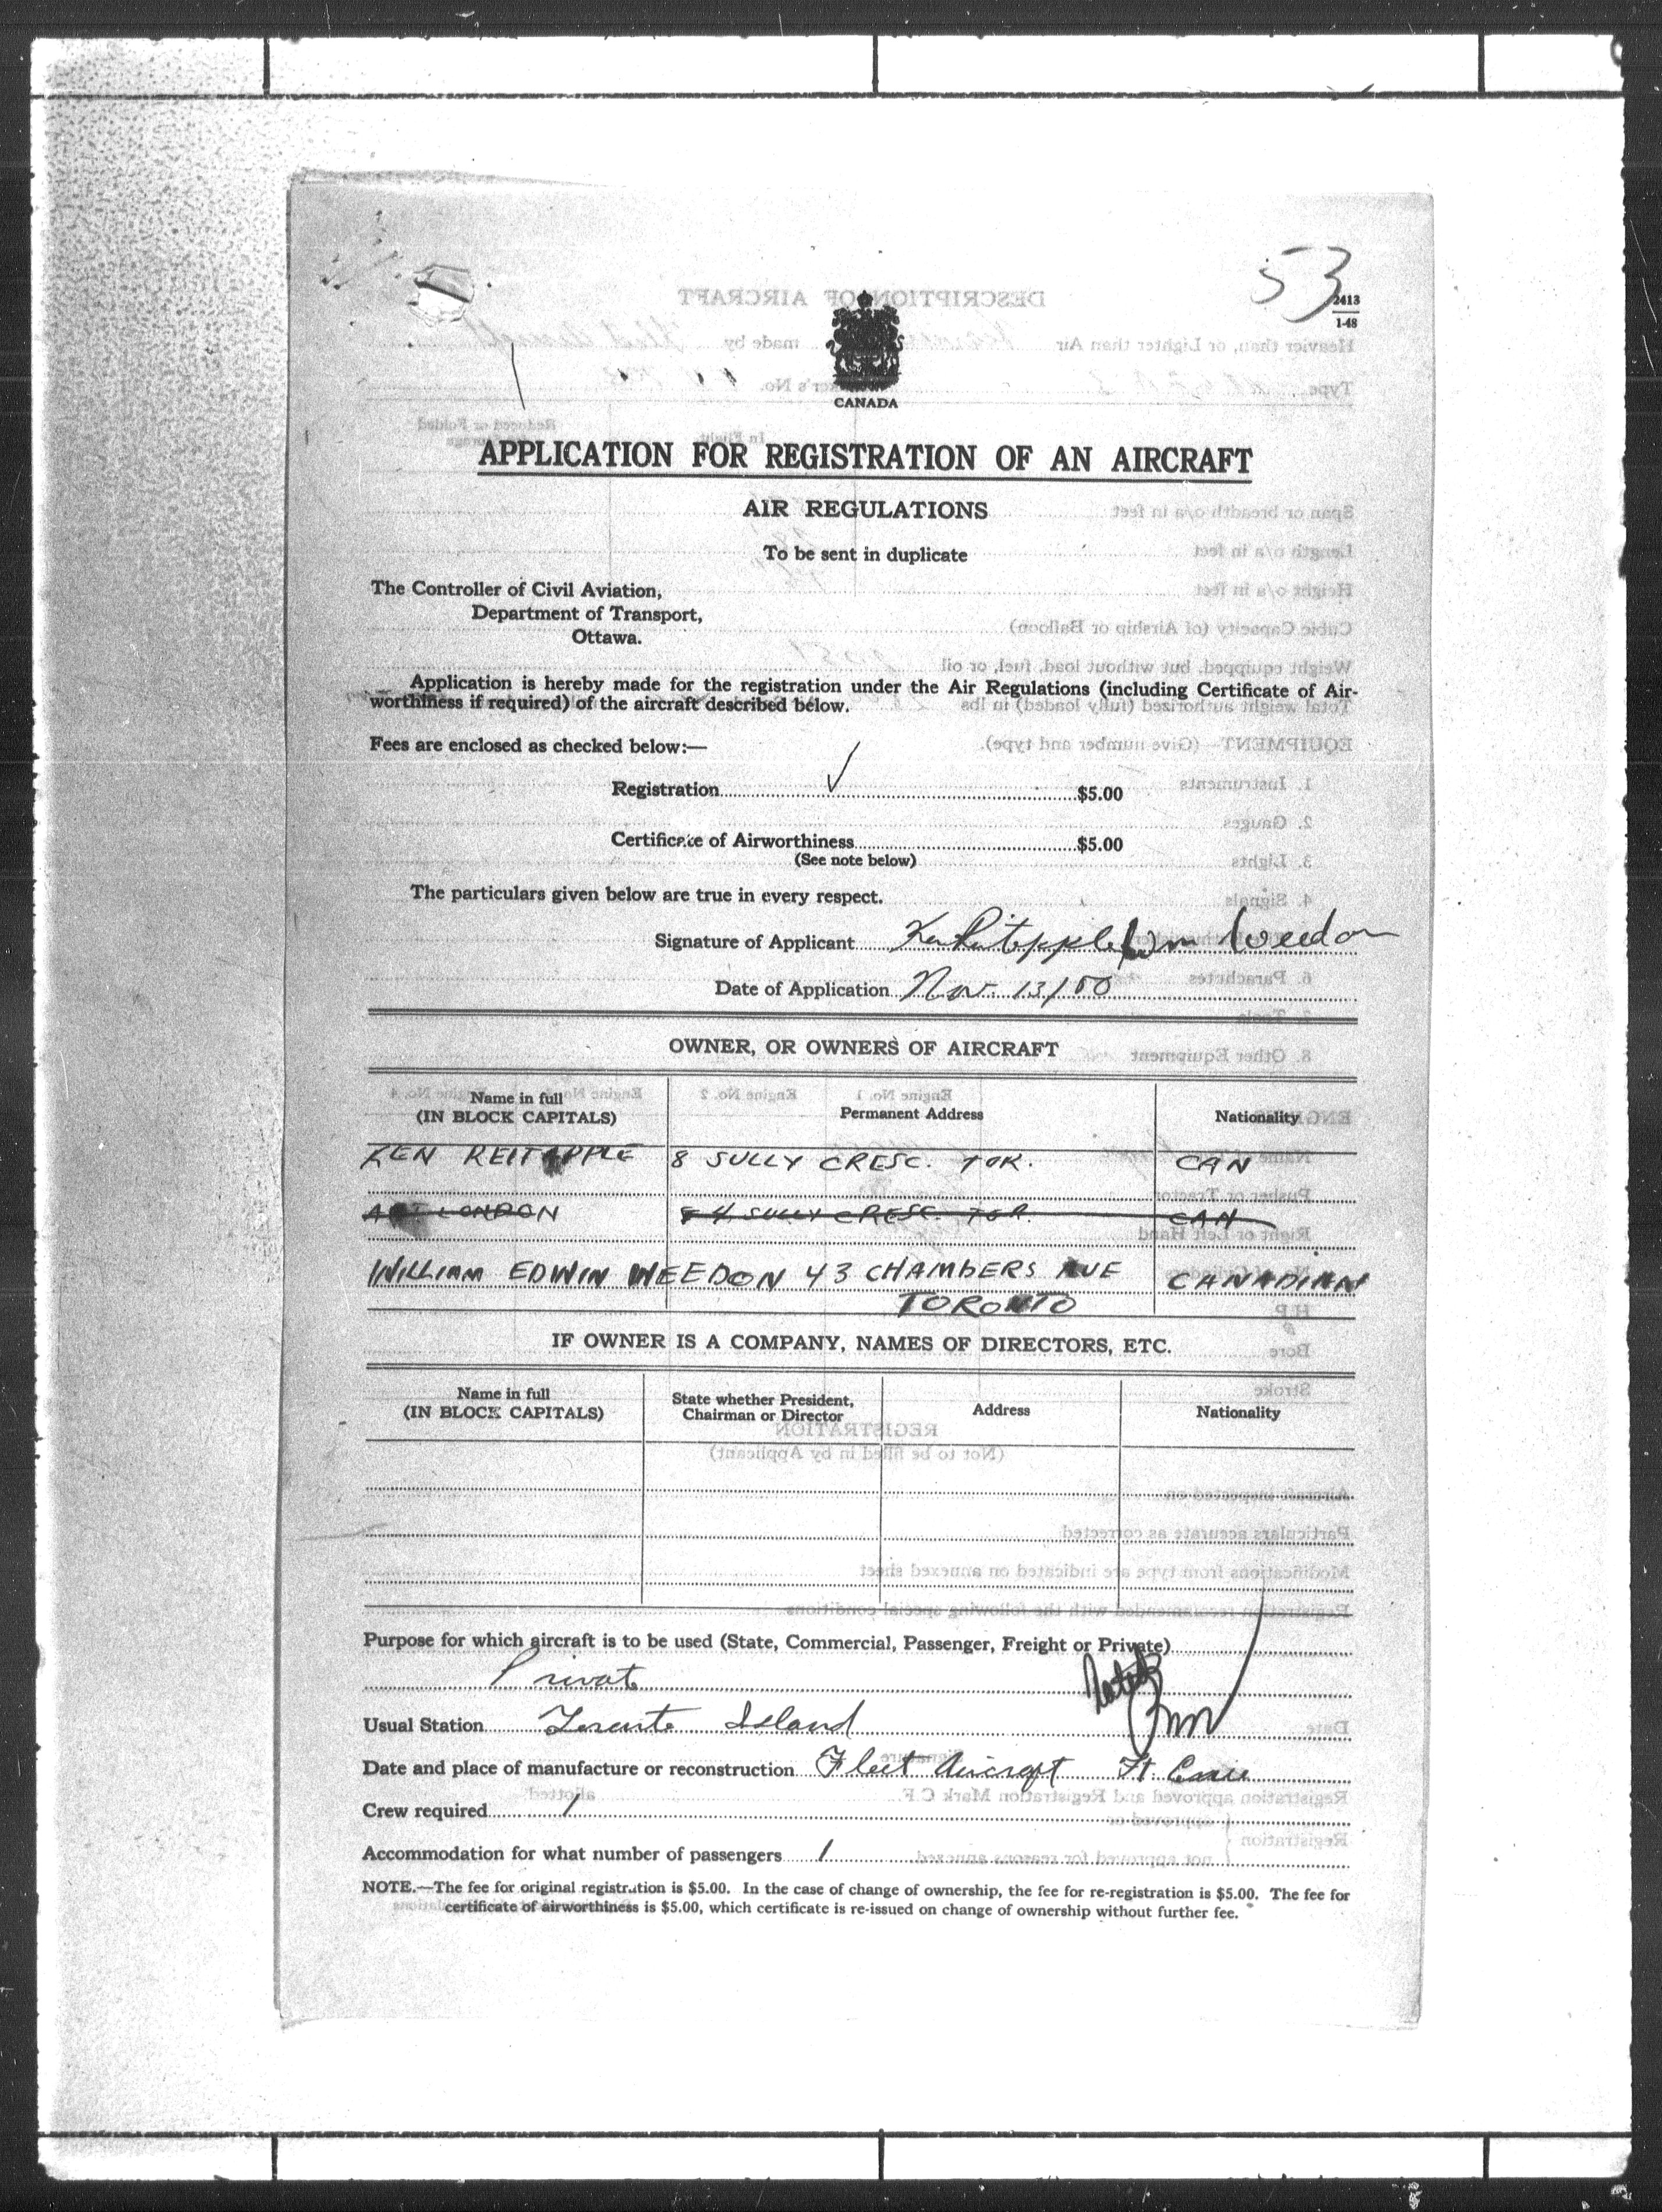 53
2413
1-48
CANADA
APPLICATION FOR REGISTRATION OF AN AIRCRAFT
AIR REGULATIONS
To be sent in duplicate
The Controller of Civil Aviation,
Department of Transport,
Ottawa.
Application is hereby made for the registration under the Air Regulations (including Certificate of Air-
worthiness if required) of the aircraft described below.
Fees are enclosed as checked below:—
Registration ✓ $5.00
Certificate of Airworthiness $5.00
(See note below)
The particulars given below are true in every respect.
Signature of Applicant Wm Weedon
Date of Application Nov. 13/50
OWNER, OR OWNERS OF AIRCRAFT
Name in full Permanent Address Nationality
(IN BLOCK CAPITALS)
KEN REITAPPLE 8 SULLY CRESC. TOR. CAN
ART LONDON 4 SULLY CRESC. TOR. CAN
WILLIAM EDWIN WEEDON 43 CHAMBERS AVE CANADIAN
TORONTO
IF OWNER IS A COMPANY, NAMES OF DIRECTORS, ETC.
Name in full State whether President, Address Nationality
(IN BLOCK CAPITALS) Chairman or Director
Purpose for which aircraft is to be used (State, Commercial, Passenger, Freight or Private)
Private
Usual Station Toronto Island
Date and place of manufacture or reconstruction Fleet Aircraft Ft. Erie
Crew required 1
Accommodation for what number of passengers 1
NOTE.—The fee for original registration is $5.00. In the case of change of ownership, the fee for re-registration is $5.00. The fee for
certificate of airworthiness is $5.00, which certificate is re-issued on change of ownership without further fee.